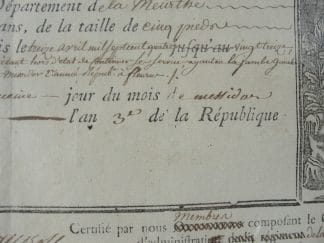 Département de la Meurthe
ans, de la taille de cinq pieds
is le treize avril mil sept cent quatre jusqu'au vingt trois
étant hors d'état de continuer le service ayant eu la jambe
Messidor l'année répub. à fleurus
jour du mois de messidor
l'an 3e de la République
Membres
Certifié par nous composant le C
d'administration de la